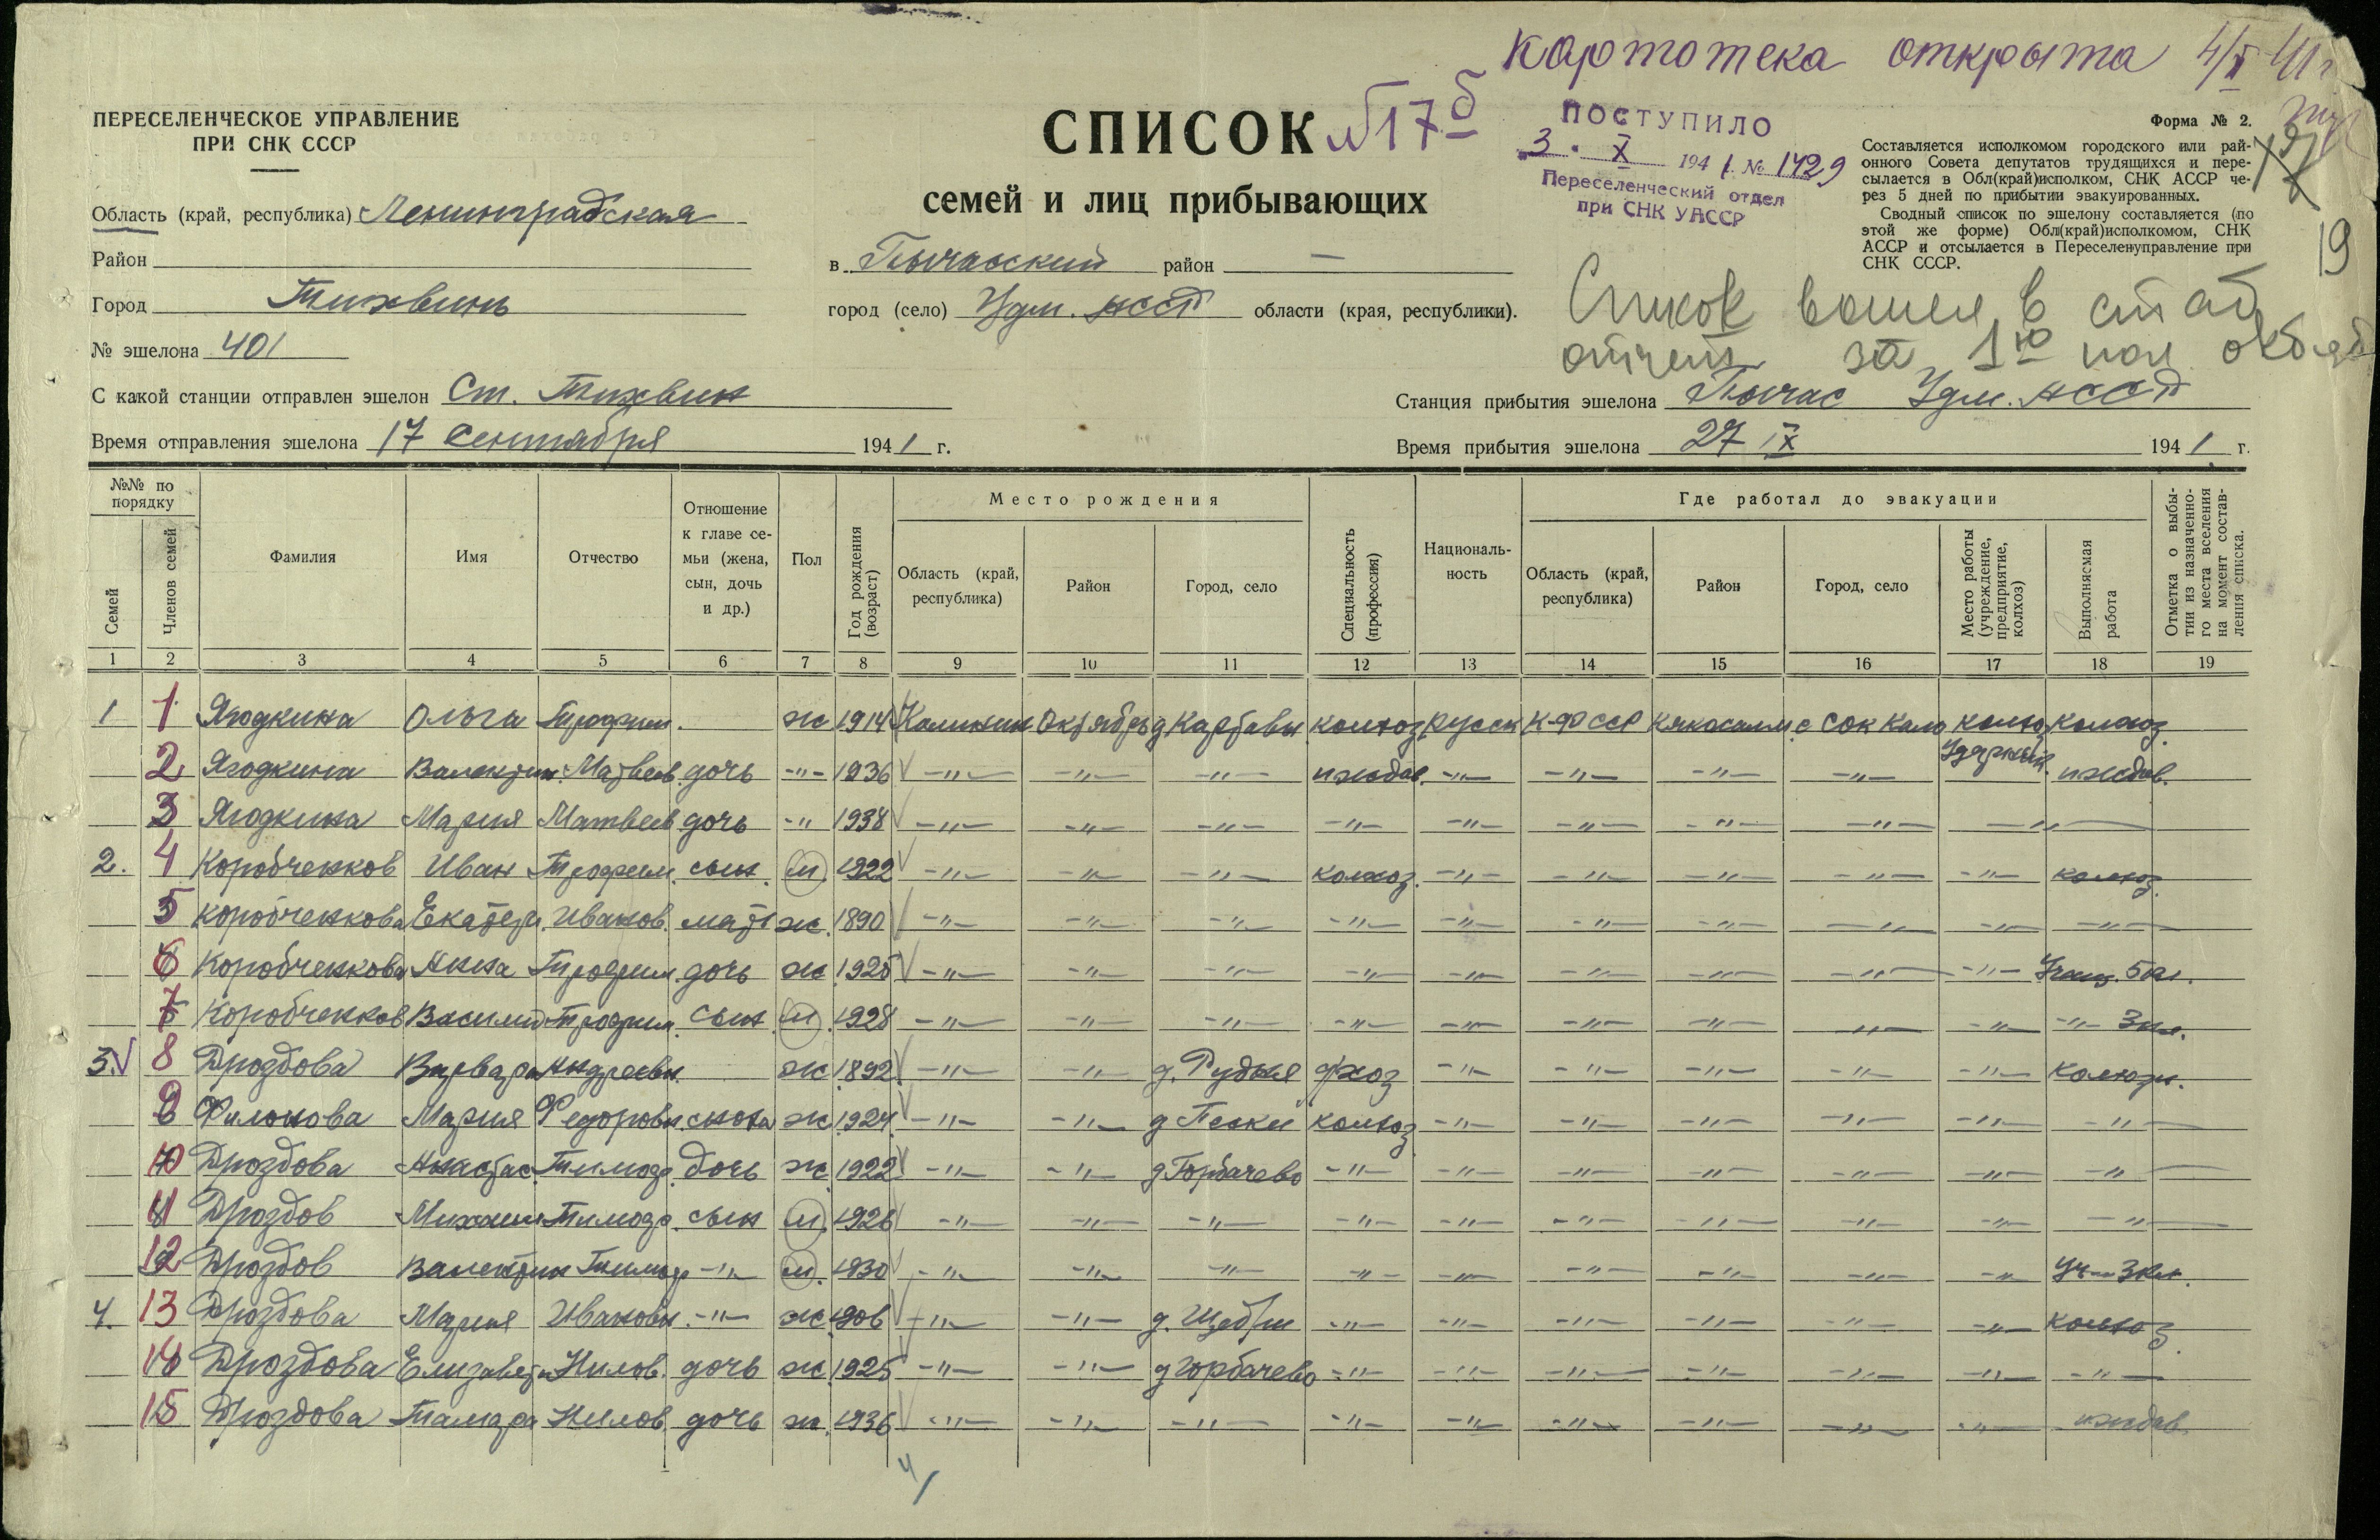 Картотека открыта 4/X 41г
ПЕРЕСЕЛЕНЧЕСКОЕ УПРАВЛЕНИЕ
ПРИ СНК СССР
СПИСОК №17б
семей и лиц прибывающих
ПОСТУПИЛО
3. X 1941 № 1429
Переселенческий отдел
при СНК УАССР
Форма № 2.
Составляется исполкомом городского или рай-
онного Совета депутатов трудящихся и пере-
сылается в Обл(край)исполком, СНК АССР че-
рез 5 дней по прибытии эвакуированных.
Сводный список по эшелону составляется (по
этой же форме) Обл(край)исполкомом, СНК
АССР и отсылается в Переселенуправление при
СНК СССР.
19
Область (край, республика) Ленинградская
Район
в Пычасский район —
Город Тихвинь
город (село) Удм. АССР области (края, республики).
Список вошел в стат
отчет за 1ю пол октяб
№ эшелона 401
С какой станции отправлен эшелон Ст. Тихвин
Станция прибытия эшелона Пычас Удм. АССР
Время отправления эшелона 17 Сентября 1941 г.
Время прибытия эшелона 27 IX 1941 г.
№№ по порядку
Семей
Членов семей
Фамилия
Имя
Отчество
Отношение к главе се-
мьи (жена, сын, дочь и др.)
Пол
Год рождения (возраст)
Место рождения
Область (край, республика)
Район
Город, село
Специальность (профессия)
Националь-
ность
Где работал до эвакуации
Область (край, республика)
Район
Город, село
Место работы (учреждение, предприятие, колхоз)
Выполняемая работа
Отметка о выбы-
тии из назначенно-
го места вселения
на момент состав-
ления списка.
1 2 3 4 5 6 7 8 9 10 11 12 13 14 15 16 17 18 19
1 1 Ягодкина Ольга Трофим. ж 1914 Калинин Октябрь колхоз русск К-ФССР колхоз колхоз
2 Ягодкина Валентин. Матвеев. дочь -"- 1936 -"- -"- -"- иждев. -"- -"- -"- -"- иждев.
3 Ягодкина Мария Матвеев дочь -"- 1938 -"- -"- -"- -"- -"- -"- -"- -"- -"-
2. 4 Коробченков Иван Трофим. сын. м. 1922 -"- -"- -"- колхоз. -"- -"- -"- -"- -"- колхоз
5 Коробченкова Екатер. Иванов. мать ж. 1890 -"- -"- -"- -"- -"- -"- -"- -"- -"- -"-
6 Коробченкова Анна Трофим. дочь ж 1925 -"- -"- -"- -"- -"- -"- -"- -"- -"- 5кл.
7 Коробченков Василий Трофим. сын м. 1928 -"- -"- -"- -"- -"- -"- -"- -"- -"- -"- 3кл.
3. 8 Дроздова Варвара Андреевн. ж 1892 -"- -"- д. Рудня -"- -"- -"- -"- -"- колхозн.
9 Филонова Мария Федоровн. сноха ж 1924 -"- -"- д Пески колхоз -"- -"- -"- -"- -"- -"-
10 Дроздова Анастас. Тимоф. дочь ж 1922 -"- -"- д Горбачево -"- -"- -"- -"- -"- -"- -"-
11 Дроздов Михаил Тимоф. сын м. 1926 -"- -"- -"- -"- -"- -"- -"- -"- -"- -"-
12 Дроздов Валентин Тимоф -"- м. 1930 -"- -"- -"- -"- -"- -"- -"- -"- -"- уч- 3кл.
4. 13 Дроздова Мария Ивановн. -"- ж 1906 -"- -"- -"- -"- -"- -"- -"- -"- колхоз
14 Дроздова Елизавета Нилов. дочь ж. 1925 -"- -"- д Горбачево -"- -"- -"- -"- -"- -"- -"-
15 Дроздова Тамара Нилов. дочь ж. 1936 -"- -"- -"- -"- -"- -"- -"- -"- -"- иждев.